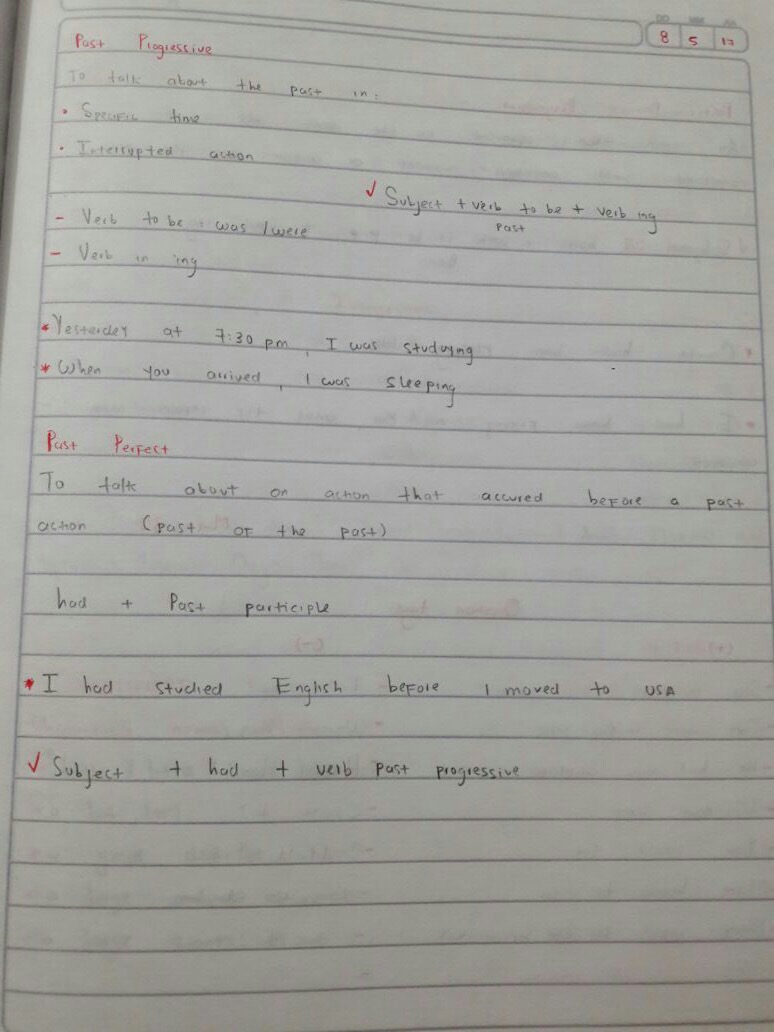 DD MM AA
8 5 17
Past Progressive
To talk about the past in:
• Specific time
• Interrupted action
✓ Subject + verb to be + verb ing
past
- Verb to be : was / were
- Verb in ing
* Yesterday at 7:30 pm, I was studuying
* When you arrived, I was sleeping
Past Perfect
To talk about on action that accured before a past
action (past of the past)
had + Past participle
* I had studied English before I moved to USA
✓ Subject + had + verb past progressive